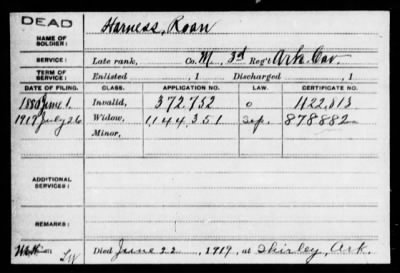 DEAD
NAME OF SOLDIER: Harness, Roan
SERVICE: Late rank, Co. M, 3d Reg't Ark. Cav.
TERM OF SERVICE: Enlisted , 1 Discharged , 1
DATE OF FILING. CLASS. APPLICATION NO. LAW. CERTIFICATE NO.
1880 June 1. Invalid, 372,732 o 422,813
1919 July 26 Widow, 1,144,351 Sep. 878882
Minor,
ADDITIONAL SERVICES:
REMARKS:
Died June 22, 1919, at Shirley, Ark.